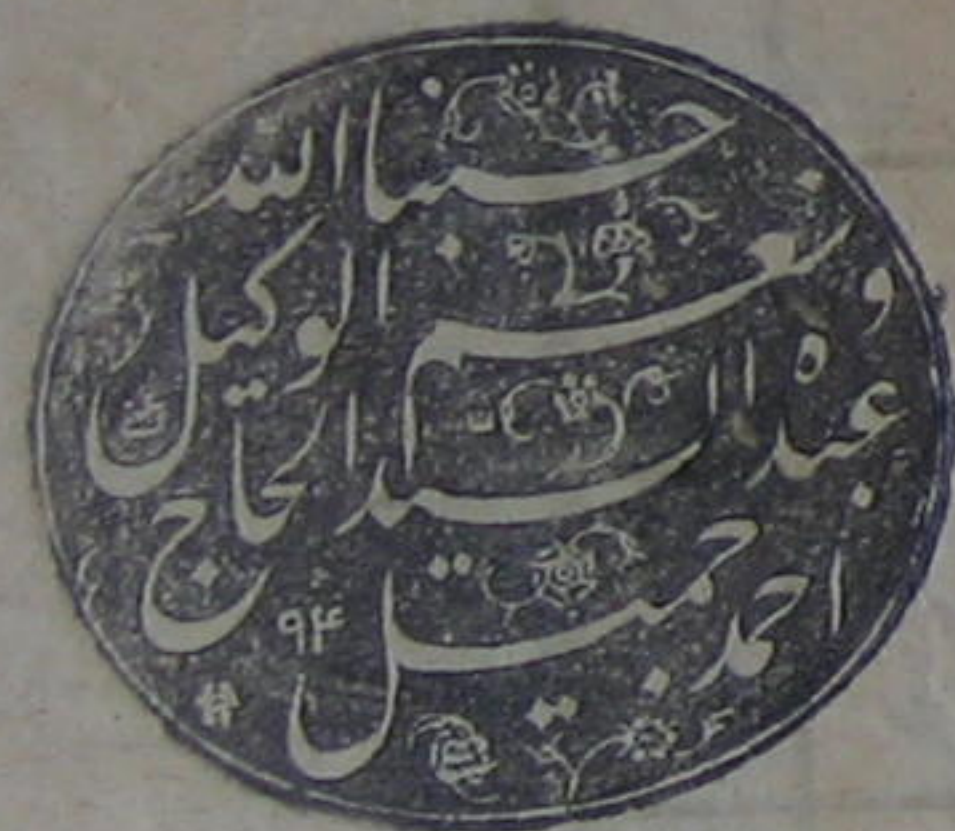 حسبنا الله
ونعم الوكيل
عبده السيد الحاج
احمد جميل
٩٤